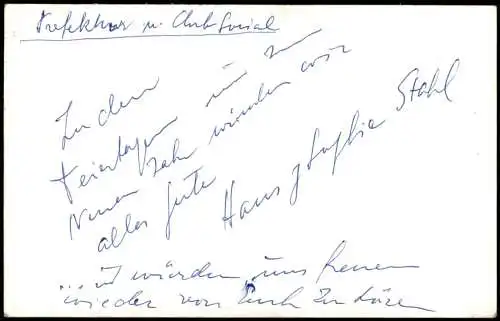 Prefektur u. Club Social
Zu den
Feiertagen und zum
Neuen Jahr wünschen wir
alles Gute
Hans y Sophia Stahl
... wir würden uns freuen
wieder von Euch zu hören